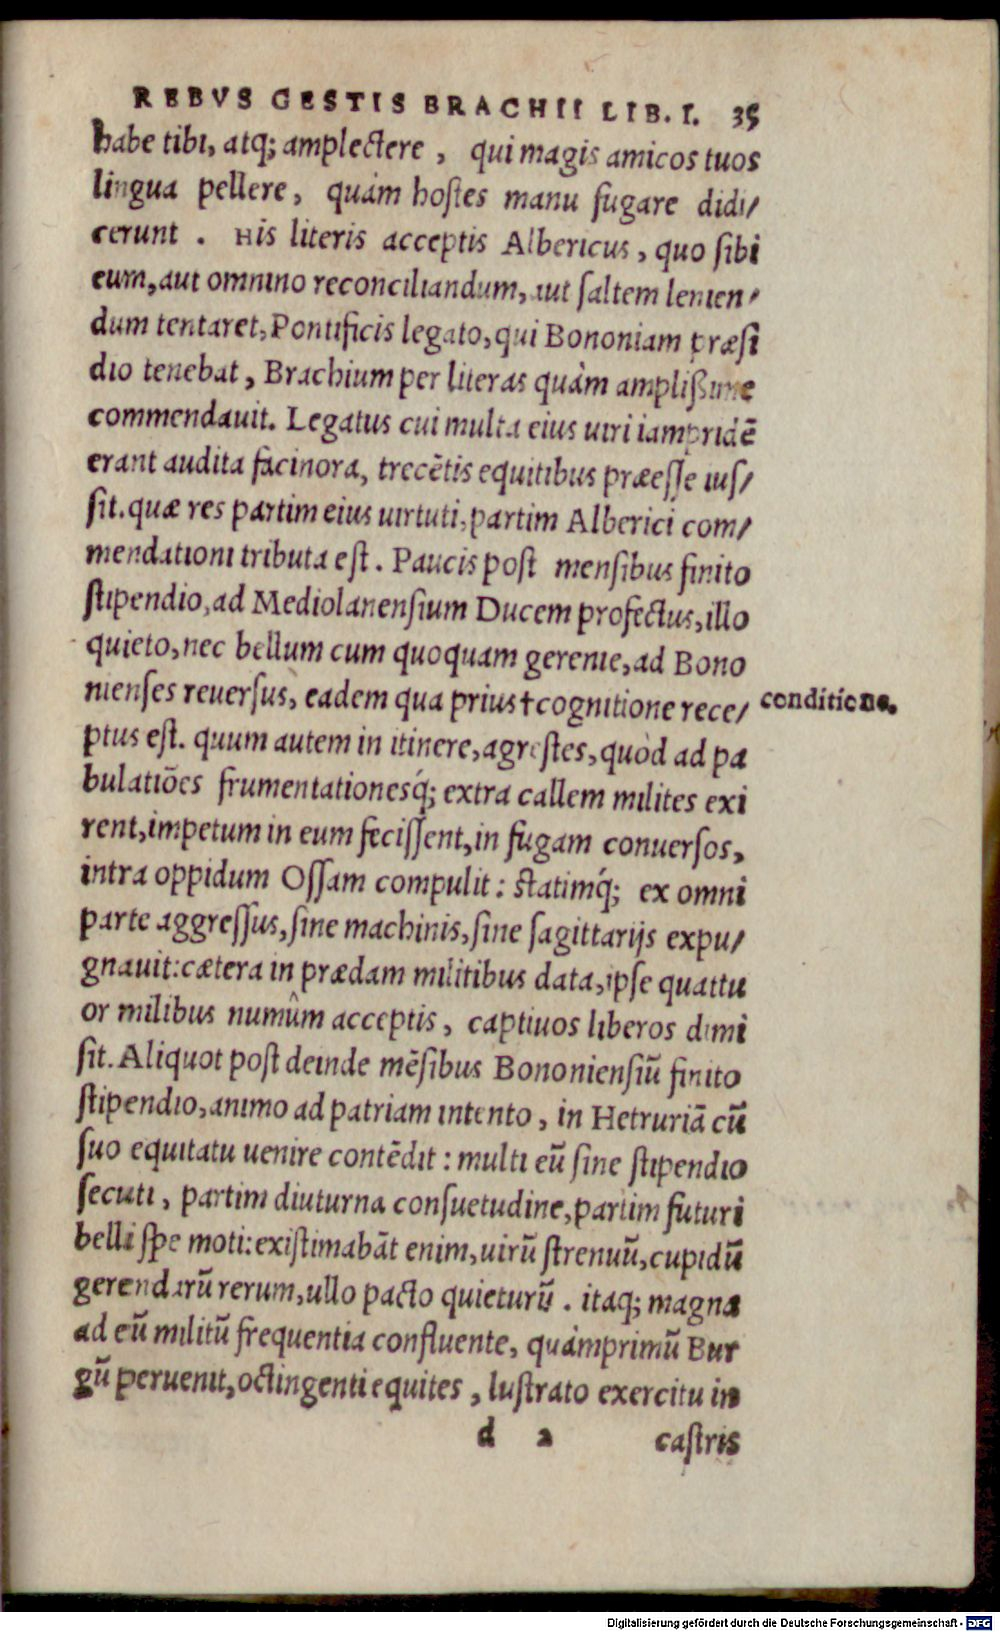 REBVS GESTIS BRACHII LIB. I. 35
habe tibi, atq; amplectere, qui magis amicos tuos
lingua pellere, quàm hoſtes manu fugare didi/
cerunt. His literis acceptis Albericus, quo ſibi
eum, aut omnino reconciliandum, aut ſaltem lenien/
dum tentaret, Pontificis legato, qui Bononiam præſi
dio tenebat, Brachium per literas quàm amplißime
commendauit. Legatus cui multa eius uiri iampridē
erant audita facinora, trecētis equitibus præeſſe iuſ/
ſit. quæ res partim eius uirtuti, partim Alberici com/
mendationi tributa eſt. Paucis poſt menſibus finito
ſtipendio, ad Mediolanenſium Ducem profectus, illo
quieto, nec bellum cum quoquam gerente, ad Bono
nienſes reuerſus, eadem qua prius † cognitione rece/
conditione.
ptus eſt. quum autem in itinere, agreſtes, quòd ad pa
bulatiōes frumentationesq́; extra callem milites exi
rent, impetum in eum feciſſent, in fugam conuerſos,
intra oppidum Oſſam compulit: ſtatimq́; ex omni
parte aggreſſus, ſine machinis, ſine ſagittarijs expu/
gnauit: cætera in prædam militibus data, ipſe quattu
or milibus numûm acceptis, captiuos liberos dimi
ſit. Aliquot poſt deinde mēſibus Bononienſiū finito
ſtipendio, animo ad patriam intento, in Hetruriā cū
ſuo equitatu uenire contēdit: multi eū ſine ſtipendio
ſecuti, partim diuturna conſuetudine, partim futuri
belli ſpe moti: exiſtimabāt enim, uirū ſtrenuū, cupidū
gerendarū rerum, ullo pacto quieturū. itaq; magna
ad eū militū frequentia confluente, quàmprimū Bur
gū peruenit, octingenti equites, luſtrato exercitu in
d a caſtris
Digitalisierung gefördert durch die Deutsche Forschungsgemeinschaft - DFG